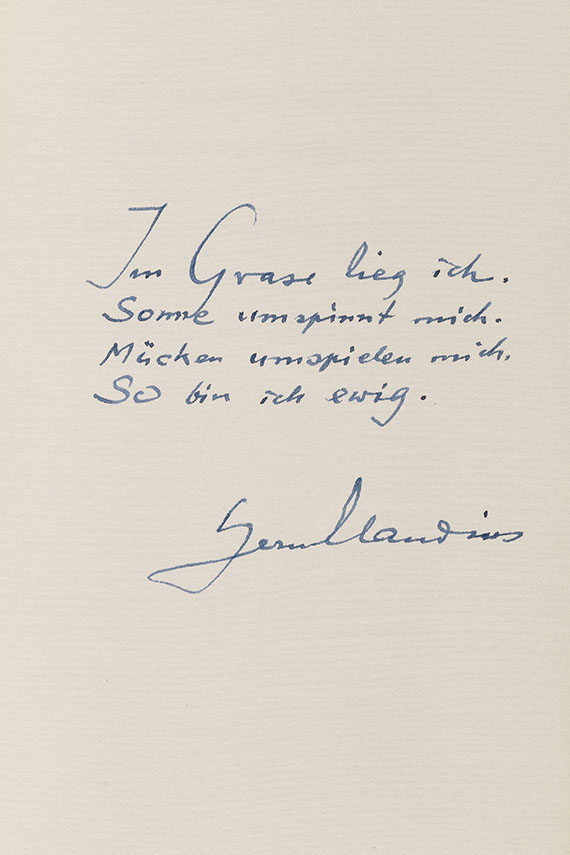 Im Grase lieg ich.
Sonne umspinnt mich.
Mücken umspielen mich.
So bin ich ewig.
Herm Claudius